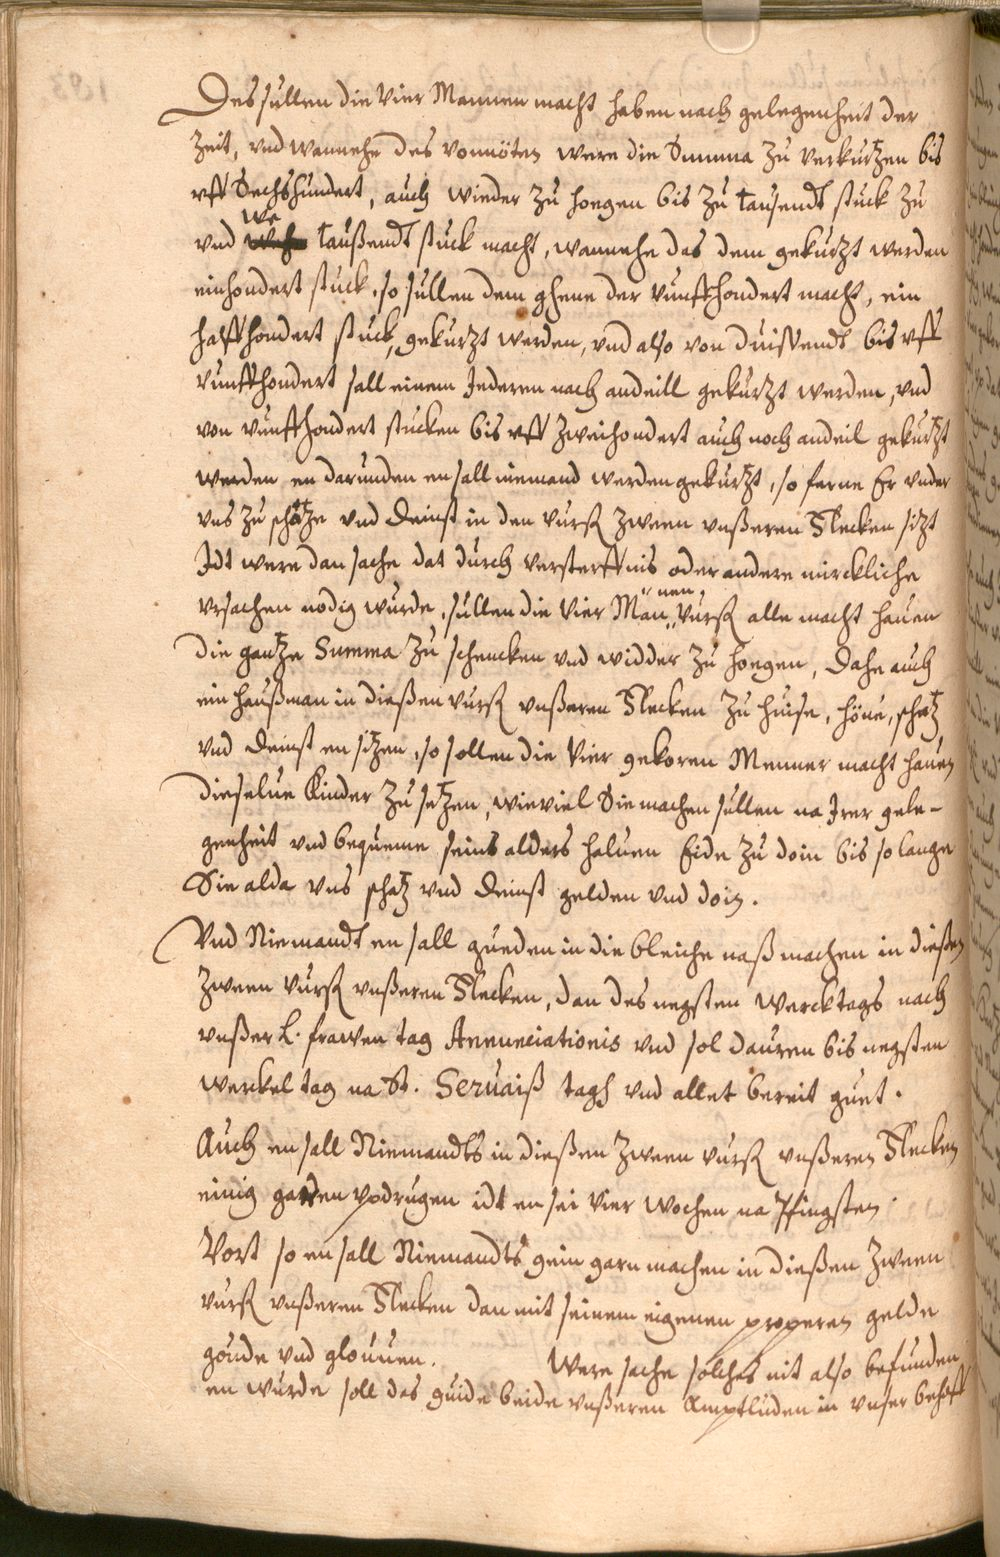 Des sullen die Vier Mannen macht haben nach gelegenheit der
Zeit, vnd wannehe des vonnöten were die Summa zu verkurtzen bis
vff Sechshundert, auch wieder zu hoegen bis zu tausendt stuck zu
vnd we taußendt stuck macht, wannehe das dem gekurzt werden
einhondert stuck, so sullen dem ghene der vunffhondert macht, ein
halffhondert stuck, gekurzt werden, vnd also von duissendt bis vff
vunffhondert sall einem Jederen nach andeill gekurzt werden, vnd
von vunffhondert stucken bis vff zweihondert auch noch andeil gekurtzt
werden en darunden en sall niemand werden gekurtzt, so ferne Er vnder
vns zu schatze vnd deinst in den vurß zween vnßeren Flecken sizt
Idt were dan sache dat durch versterffnis oder andere mirckliche
vrsachen nodig wurde, sullen die Vier Männen vurß alle macht hauen
die gantze Summa zu schencken vnd widder zu hoegen, Dahe auch
ein haußman in dießen vurß vnßeren Flecken zu huise, höue, schatz
vnd deinst en sitzen, so sollen die Vier gekoren Menner macht hauen
dieselue Kinder zu setzen, wieviel Sie machen sullen na Irer gele-
genheit vnd bequeme seins alders haluen Eide zu doin bis so lange
Sie alda vns schatz vnd deinst gelden vnd doin.
Vnd Niemandt en sall gueden in die bleiche naß machen in dießen
zween vurß vnßeren Flecken, dan des negsten wercktags nach
vnßer L. frawen tag Annunciationis vnd sol dauren bis negsten
werckel tag na St. Seruaiß tagh vnd allet bereit guet.
Auch en sall Niemandts in dießen zween vurß vnßeren Flecken
einig garden vpdrugen idt en sei vier wochen na Pfingsten
Vort so en sall Niemandts gein garn machen in dießen zween
vurß vnßeren Flecken dan mit seinem eigenen properen gelde
goude vnd glouuen. Were sache solches nit also befunden
en wurde soll das guide beide vnßeren Amptluden in vnser behoff